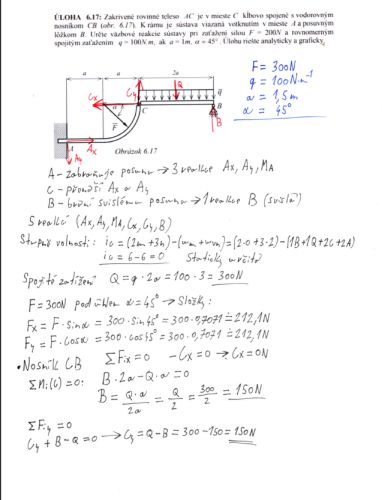 ÚLOHA 6.17: Zakrivené rovinné teleso AC je v mieste C kĺbovo spojené s vodorovným
nosníkom CB (obr. 6.17). K rámu je sústava viazaná votknutím v mieste A a posuvným
lôžkom B. Určte väzbové reakcie sústavy pri zaťažení silou F = 200N a rovnomerným
spojitým zaťažením q = 100N/m, ak a = 1m, α = 45°. Úlohu riešte analyticky a graficky.
F = 300N
q = 100N·m⁻¹
a = 1,5m
α = 45°
a a 2a
Cx Cy Q q
α F C B
B
A Ax
Ay
Obrázok 6.17
A - zabraňuje posunu → 3 reakce Ax, Ay, MA
C - přenáší Ax a Ay
B - brání svislému posunu → 1 reakce B (svislá)
5 reakcí (Ax, Ay, MA, Cx, Cy, B)
Stupně volnosti: i₀ =
i₀ = 6-6 = 0 Staticky určitá
Spojité zatížení Q = q·2a = 100·3 = 300N
F = 300N pod úhlem α = 45° → Složky:
Fx = F·sinα = 300·sin45° = 300·0,7071 ≐ 212,1N
Fy = F·cosα = 300·cos45° = 300·0,7071 ≐ 212,1N
• Nosník CB ΣFix = 0 -Cx = 0 → Cx = 0N
ΣMi(C) = 0: B·2a - Q·a = 0
B = Q·a/2a = Q/2 = 300/2 = 150N
ΣFiy = 0
Cy + B - Q = 0 → Cy = Q - B = 300 - 150 = 150N